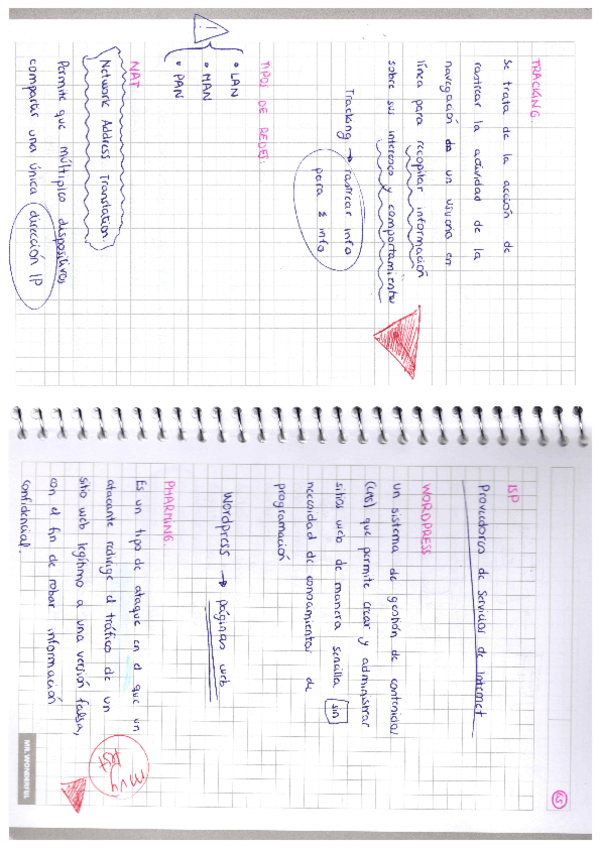 TRACKING
Se trata de la acción de
rastrear la actividad de la
navegación de un usuario en
línea para recopilar información
sobre sus intereses y comportamientos
Tracking → rastrear info
para
info
TIPOS DE REDES:
• LAN
• MAN
• PAN
NAT
Network Address Translation.
Permite que múltiples dispositivos
compartir una única dirección IP
65
ISP
Proveedores de Servicios de Internet
WORDPRESS
un sistema de gestión de contenidos
(CMS) que permite crear y administrar
sitios web de manera sencilla sin
necesidad de conocimientos de
programación
Wordpress → páginas web
PHARMING
Es un tipo de ataque en el que un
atacante redirige el tráfico de un
sitio web legítimo a una versión falsa,
con el fin de robar información
confidencial.
muy
test
MR. WONDERFUL